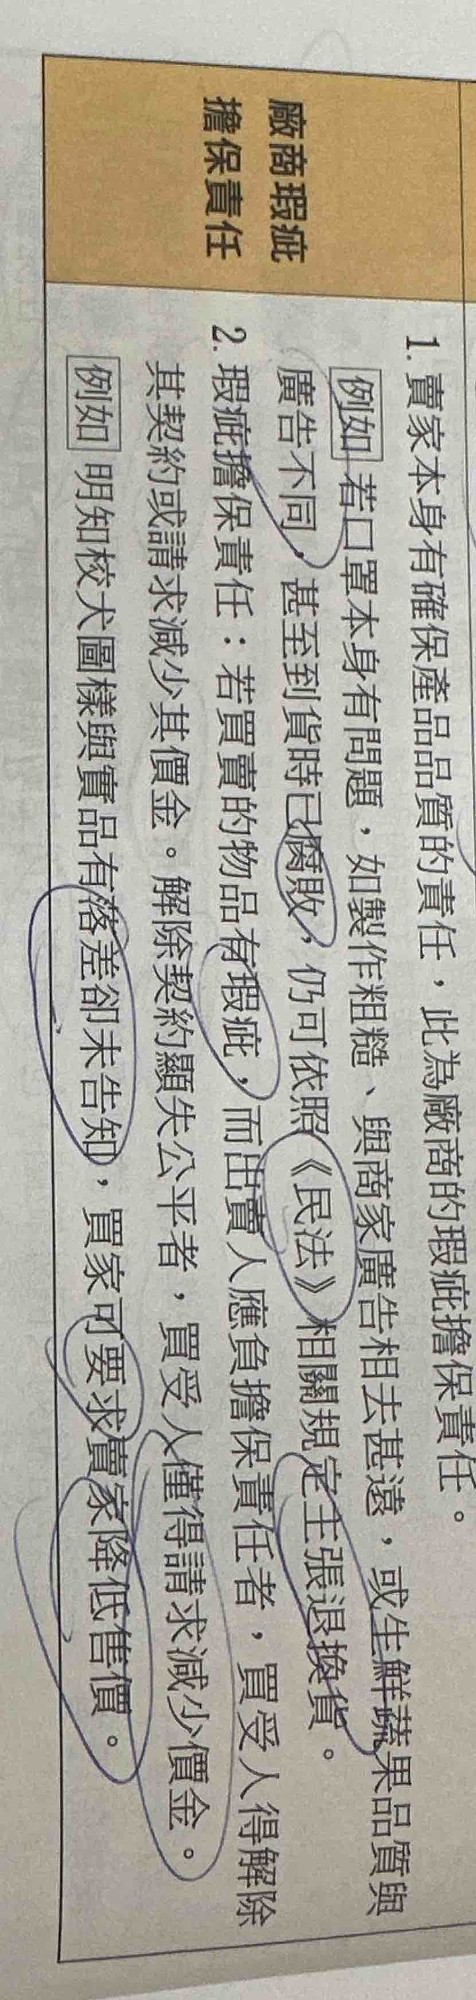 廠商瑕疵
擔保責任
1. 賣家本身有確保產品品質的責任，此為廠商的瑕疵擔保責任。
例如 若口罩本身有問題，如製作粗糙、與商家廣告相去甚遠，或生鮮蔬果品質與
廣告不同，甚至到貨時已腐敗，仍可依照《民法》相關規定主張退換貨。
2. 瑕疵擔保責任：若買賣的物品有瑕疵，而出賣人應負擔保責任者，買受人得解除
其契約或請求減少其價金。解除契約顯失公平者，買受人僅得請求減少價金。
例如 明知校犬圖樣與實品有落差卻未告知，買家可要求賣家降低售價。